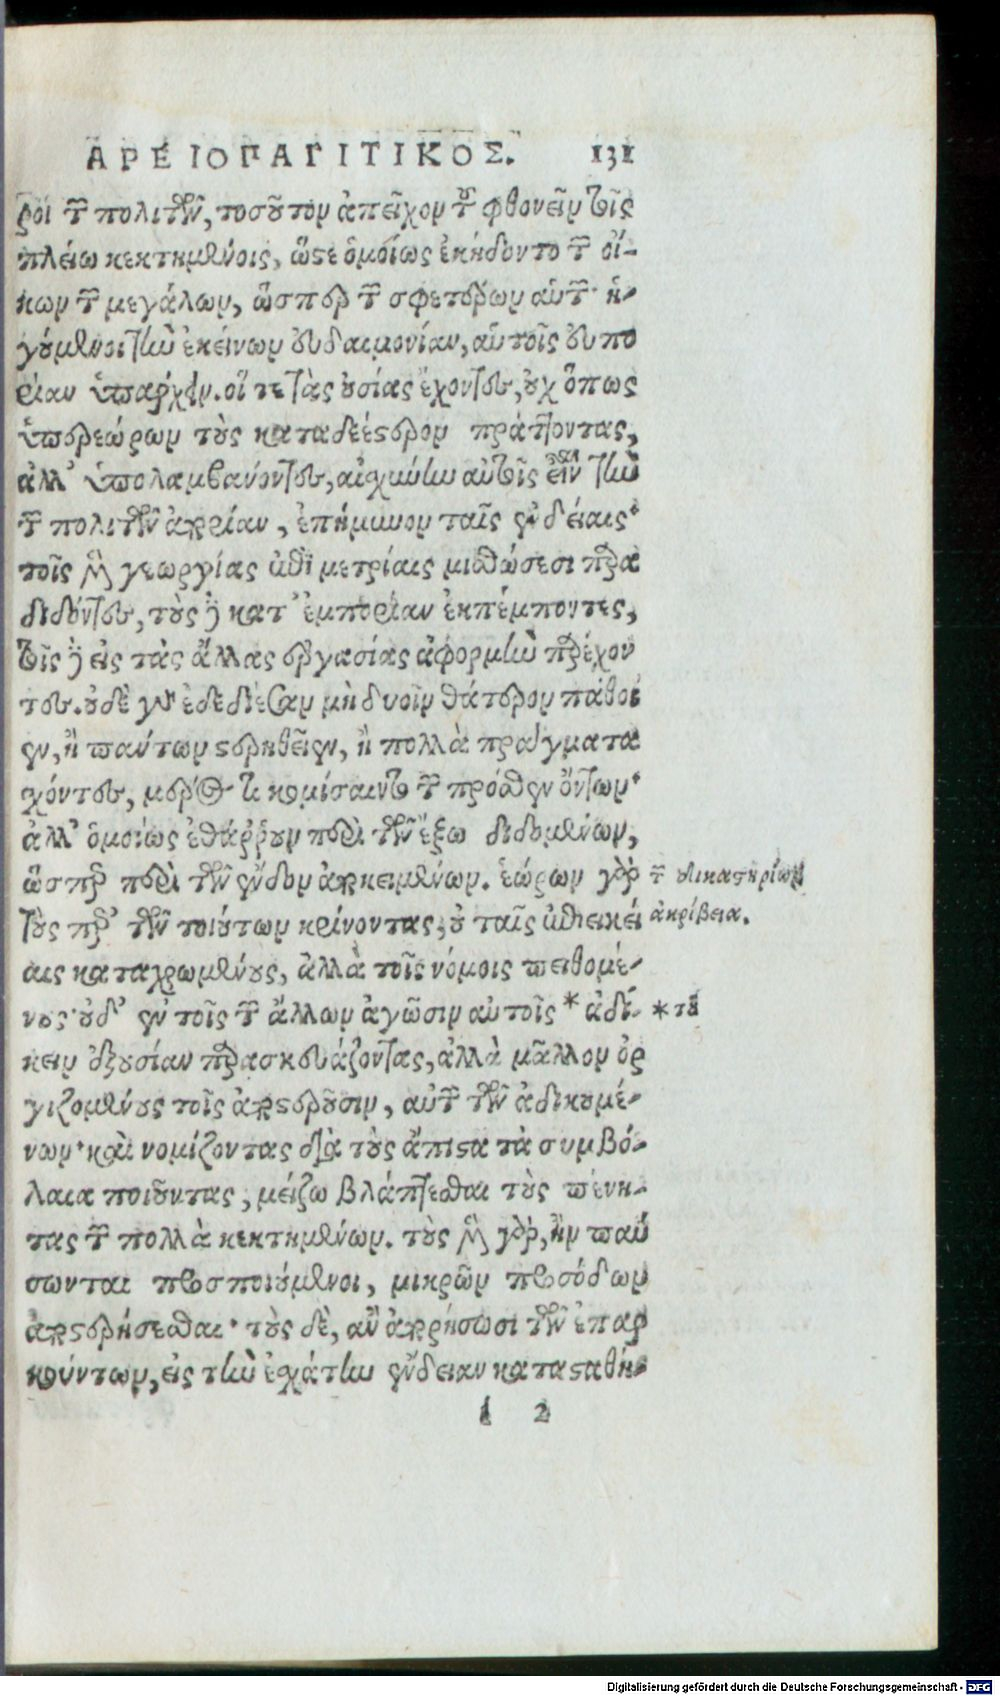 ΑΡΕΙΟΠΑΓΙΤΙΚΟΣ. 131
ροι τῶν πολιτῶν, τοσοῦτον ἀπεῖχον τοῦ φθονεῖν τοῖς
πλείω κεκτημένοις, ὥστε ὁμοίως ἐκήδοντο τῶν οἴ-
κων τῶν μεγάλων, ὥσπερ τῶν σφετέρων αὑτῶν· ἡ-
γούμενοι τὴν ἐκείνων ευδαιμονίαν, αὑτοῖς ευπο
ρίαν ὑπάρχειν. οἵ τε τὰς οὐσίας ἔχοντες, οὐχ ὅπως
ὑπερεώρων τοὺς καταδεέστερον πράττοντας,
ἀλλ' ὑπολαμβάνοντες, αἰσχύνην αὐτοῖς εἶναι τὴν
τῶν πολιτῶν ἀπορίαν, ἐπήμυνον ταῖς ἐνδείαις·
τοῖς μὲν γεωργίας ἐπὶ μετρίαις μισθώσεσι παρα
διδόντες, τοὺς δὲ κατ' ἐμπορίαν ἐκπέμποντες,
τοῖς δὲ εἰς τὰς ἄλλας ἐργασίας ἀφορμὴν παρέχον
τες. οὐδὲ γὰρ ἐδεδίεσαν μὴ δυοῖν θάτερον πάθοι
εν, ἢ πάντων στερηθεῖεν, ἢ πολλὰ πράγματα
χόντες, μέρος τι κομίσαιντο τῶν πρόσθεν ὄντων·
ἀλλ' ὁμοίως ἐθάρρουν περὶ τῶν ἔξω διδομένων,
ὥσπερ περὶ τῶν ἔνδον ἀποκειμένων. ἑώρων γὰρ
τοὺς περὶ τῶν τοιούτων κρίνοντας, οὐ ταῖς ἐπιεικεί
αις καταχρωμένους, ἀλλὰ τοῖς νόμοις πειθομέ-
νους· οὐδ' ἐν τοῖς τῶν ἄλλων ἀγῶσιν αὐτοῖς * ἀδί-
κειν ἐξουσίαν παρασκευάζοντας, ἀλλὰ μᾶλλον ὀρ
γιζομένους τοῖς ἀποστεροῦσιν, αὐτῶν τῶν ἀδικουμέ-
νων· καὶ νομίζοντας διὰ τοὺς ἄπιστα τὰ συμβό-
λαια ποιοῦντας, μείζω βλάπτεσθαι τοὺς πένη-
τας τῶν πολλὰ κεκτημένων. τοὺς μὲν γὰρ, ἢν παύ
σωνται προσποιούμενοι, μικρῶν προσόδων
ἀποστερήσεσθαι· τοὺς δὲ, ἂν ἀπορήσωσι τῶν ἐπαρ
κούντων, εἰς τὴν ἐσχάτην ἔνδειαν καταστῆ-
τῶν δικαστηρίων
ἀκρίβεια.
* τοῦ
i 2
Digitalisierung gefördert durch die Deutsche Forschungsgemeinschaft - DFG